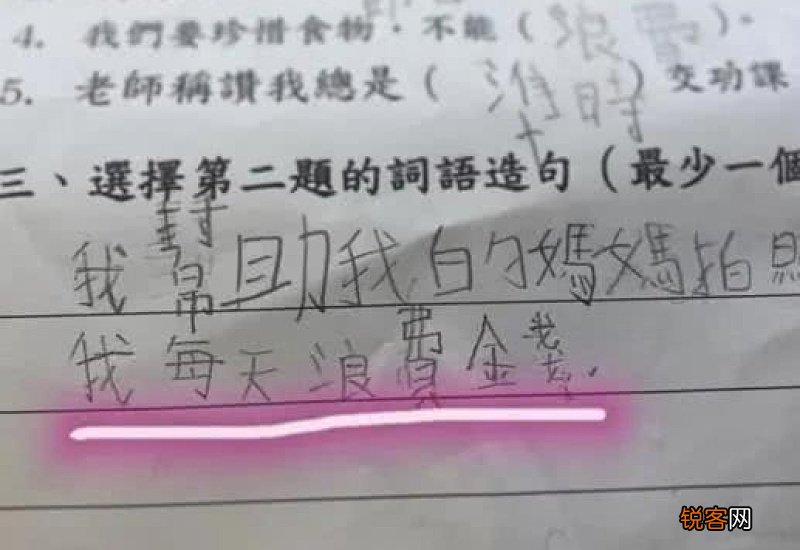 4. 我們要珍惜食物,不能(浪費)。
5. 老師稱讚我總是(準時)交功課
三、選擇第二題的詞語造句(最少一個
我幫助我的媽媽拍照
我每天浪費金錢.
锐客网